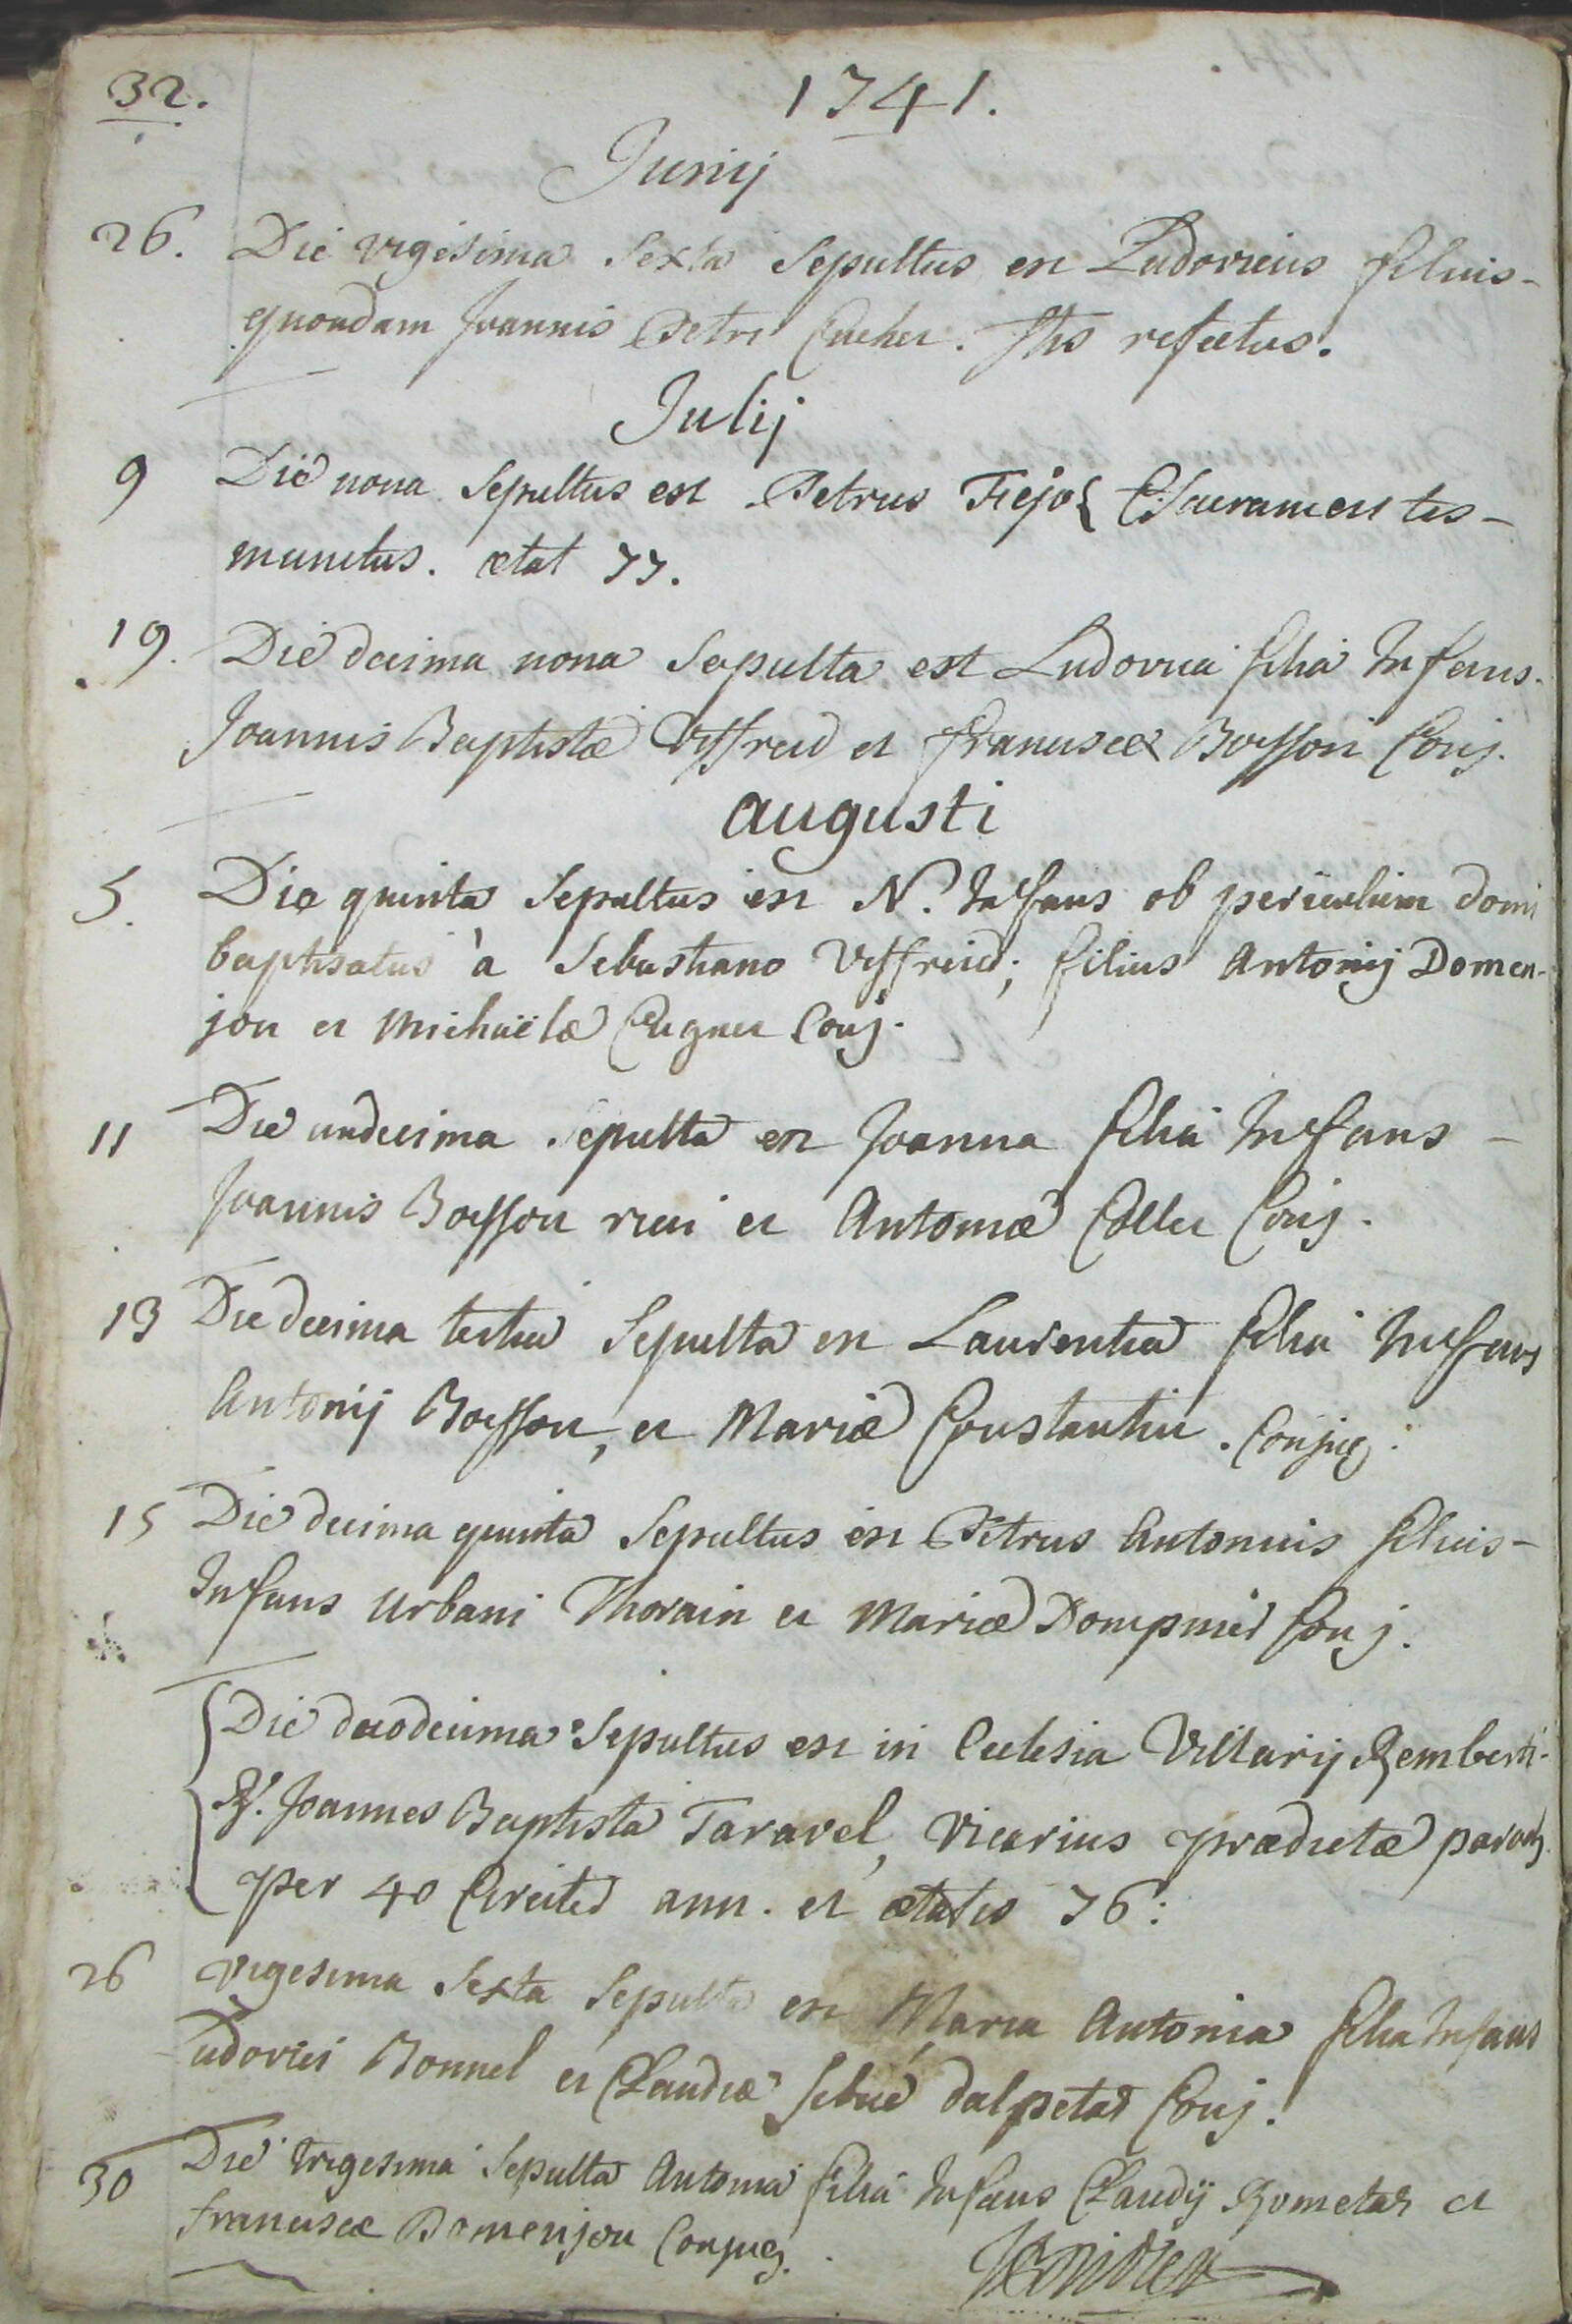 32.
1741.
Junij
26. Die vigesima sexta Sepultus est Ludovicus filius
quondam Joannis Petri Cuchet. Stis refectus.
Julij
9 Die nona Sepultus est Petrus Fejoz Sacramentis
munitus. ætat 77.
19. Die decima nona Sepulta est Ludovica filia Infans
Joannis Baptistæ Viffred et Franciscæ Boisson Conj.
augusti
5. Die quinta Sepultus est N. Infans ob periculum domi
baptisatus à Sebastiano Viffred; filius Antonij Domen-
jon et Michaëlæ Cugnet Conj.
11 Die undecima Sepulta est Joanna filia Infans
Joannis Boisson et Antoniæ Collet Conj.
13 Die decima tertia Sepulta est Laurentia filia Infans
Antonij Boisson, et Mariæ Constantin. Conjug:
15 Die decima quinta Sepultus est Petrus Antonius filius
Infans Urbani Thorain et Mariæ Dompnier Conj.
Die duodecima Sepultus est in Ecclesia Villarij Gemberti
Rd. Joannes Baptista Taravel, Vicarius prædictæ paroch.
per 40 Circiter ann. et ætatis 76:
26 vigesima Sexta Sepulta est Maria Antonia filia Infans
udovici Bonnel et Claudiæ Sibué dalpetaz Conj.
30 Die trigesima Sepulta Antonia filia Infans Claudij Gometaz et
franciscæ Domenjon Conjug.